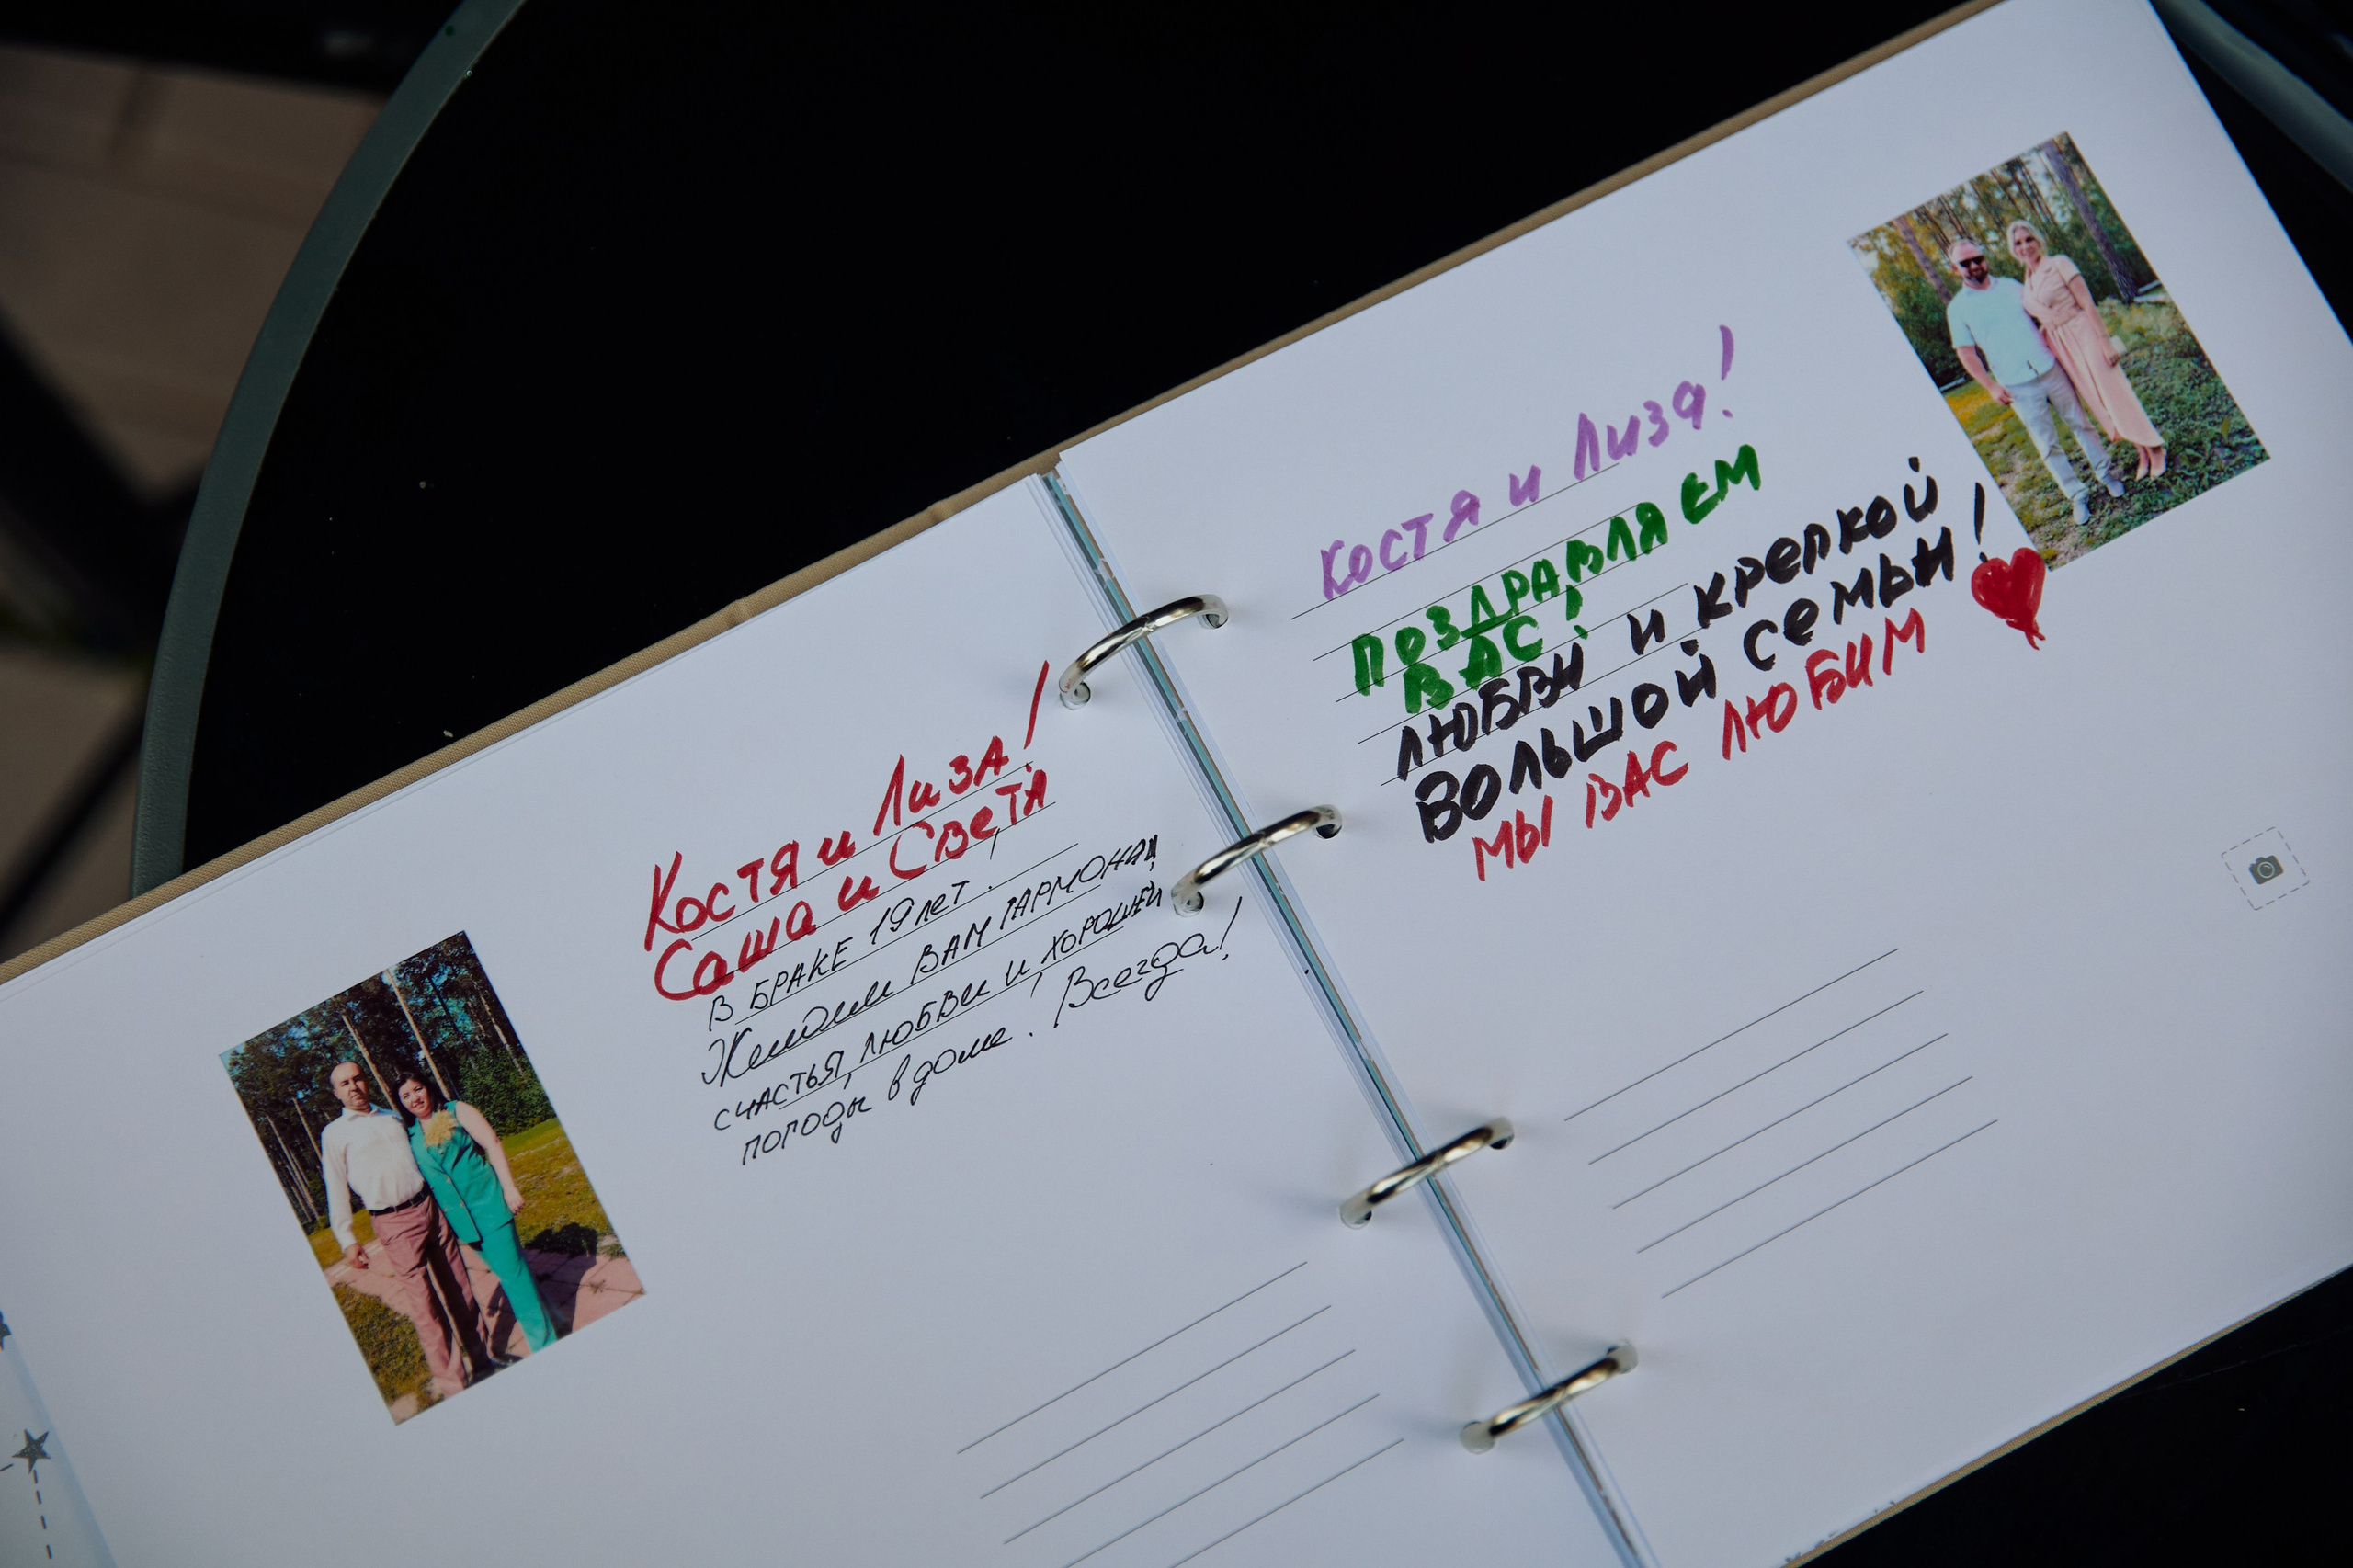 Костя и Лиза!
Саша и Света
В БРАКЕ 19 лет.
Желаем ВАМ ГАРМОНИИ,
СЧАСТЬЯ, ЛЮБВИ и ХОРОШЕЙ
ПОГОДЫ в доме. Всегда!
КОСТЯ и Лиза!
ПОЗДРАВЛЯЕМ
ВАС!
ЛЮБВИ И КРЕПКОЙ
БОЛЬШОЙ СЕМЬИ!
МЫ ВАС ЛЮБИМ